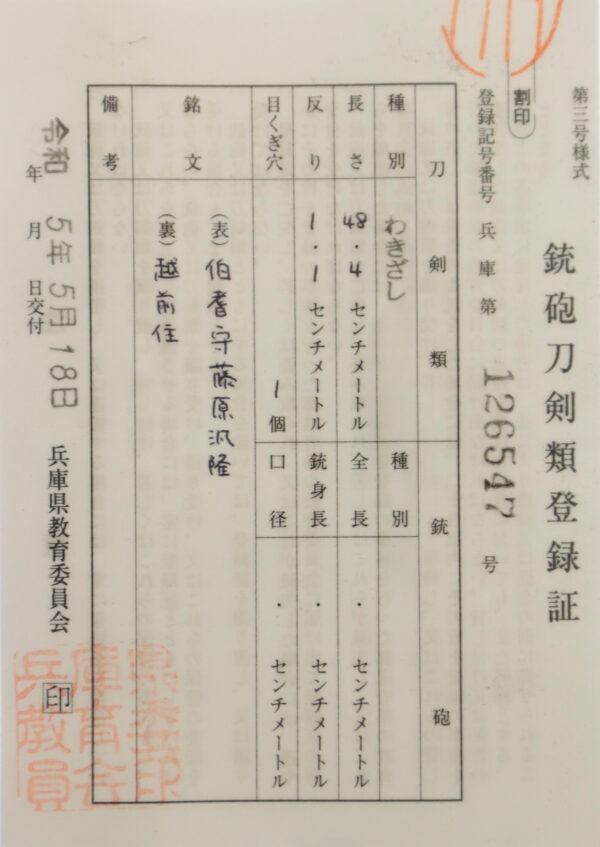 第三号様式
銃砲刀剣類登録証
割印
登録記号番号 兵庫第 126547 号
刀剣類
銃砲
種別 わきざし
種別
長さ 48・4 センチメートル
全長 ・ センチメートル
反り 1・1 センチメートル
銃身長 ・ センチメートル
目くぎ穴 1個
口径 ・ センチメートル
銘文
(表) 伯耆守藤原汎隆
(裏) 越前住
備考
令和 5年5月18日
年 月 日交付
兵庫県教育委員会 印
兵庫県教育委員会印